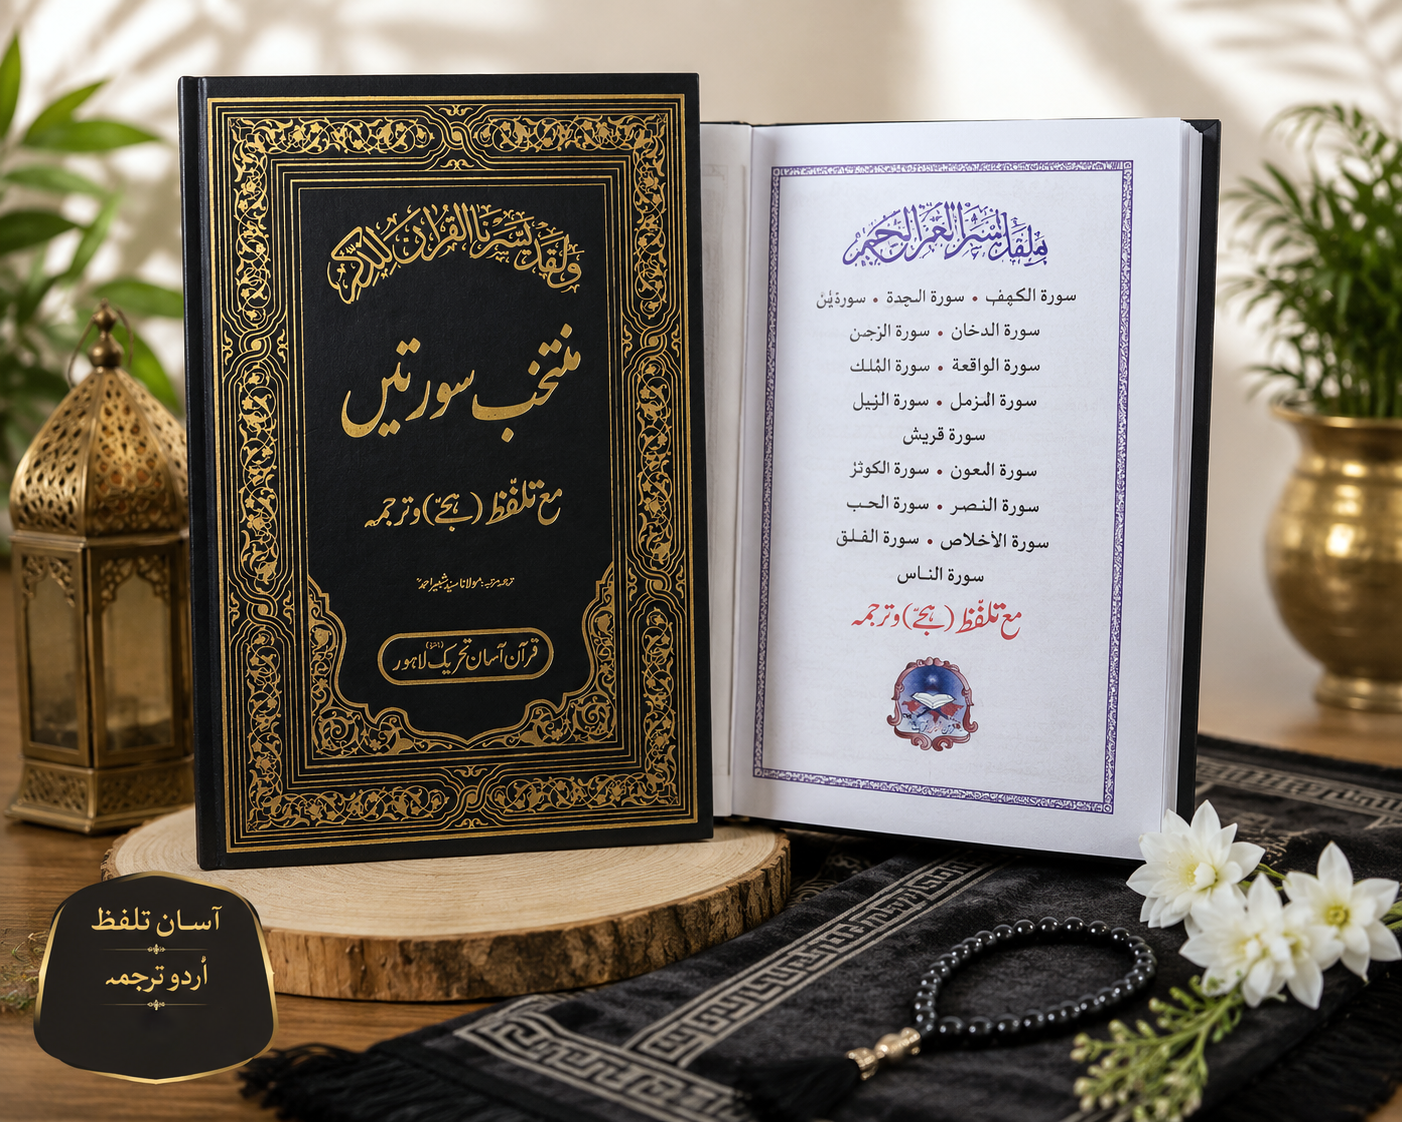 ولقد يسرنا القرآن للذكر
منتخب سورتیں
مع تلفّظ (ہجّے) و ترجمہ
ترجمہ مرتبہ: مولانا سید شبیر احمدؒ
قرآن آسان تحریک لاہور
سورة الكهف • سورة السجدة •
سورة الدخان • سورة الرحمن
سورة الواقعة • سورة المُلك
سورة المزمل •
سورة قريش
سورة • سورة الكوثر
سورة النصر • سورة
سورة الأخلاص • سورة الفلق
سورة الناس
مع تلفّظ (ہجّے) و ترجمہ
آسان تلفظ
اُردو ترجمہ